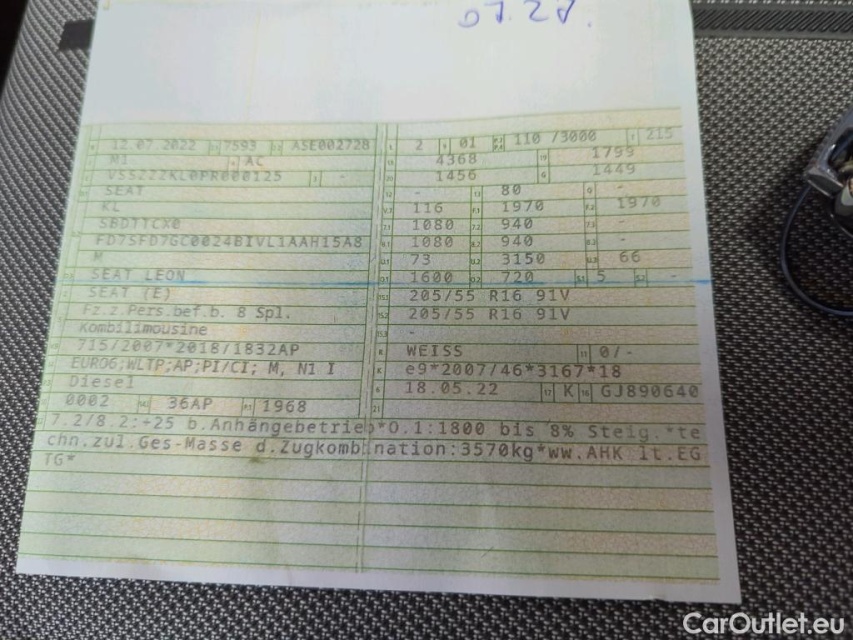 07.27.
12.07.2022 7593 ASE002728
M1 AC
VSSZZZKL0PR000125 -
SEAT
KL
SBDTTCX0
FD7SFD7GC0024BIVL1AAH15A8
M
SEAT LEON
SEAT (E)
Fz.z.Pers.bef.b. 8 Spl.
Kombilimousine
715/2007*2018/1832AP
EURO6;WLTP;AP;PI/CI; M, N1 I
Diesel
0002 36AP 1968
2 01 110 /3000 215
4368 1799
1456 1449
- 80 -
116 1970 1970
1080 940 -
1080 940 -
73 3150 66
1600 720 5 -
205/55 R16 91V
205/55 R16 91V
-
WEISS 0/-
e9*2007/46*3167*18
18.05.22 K GJ890640
7.2/8.2:+25 b.Anhängebetrieb*O.1:1800 bis 8% Steig.*te
chn.zul.Ges-Masse d.Zugkombination:3570kg*ww.AHK lt.EG
TG*
CarOutlet.eu